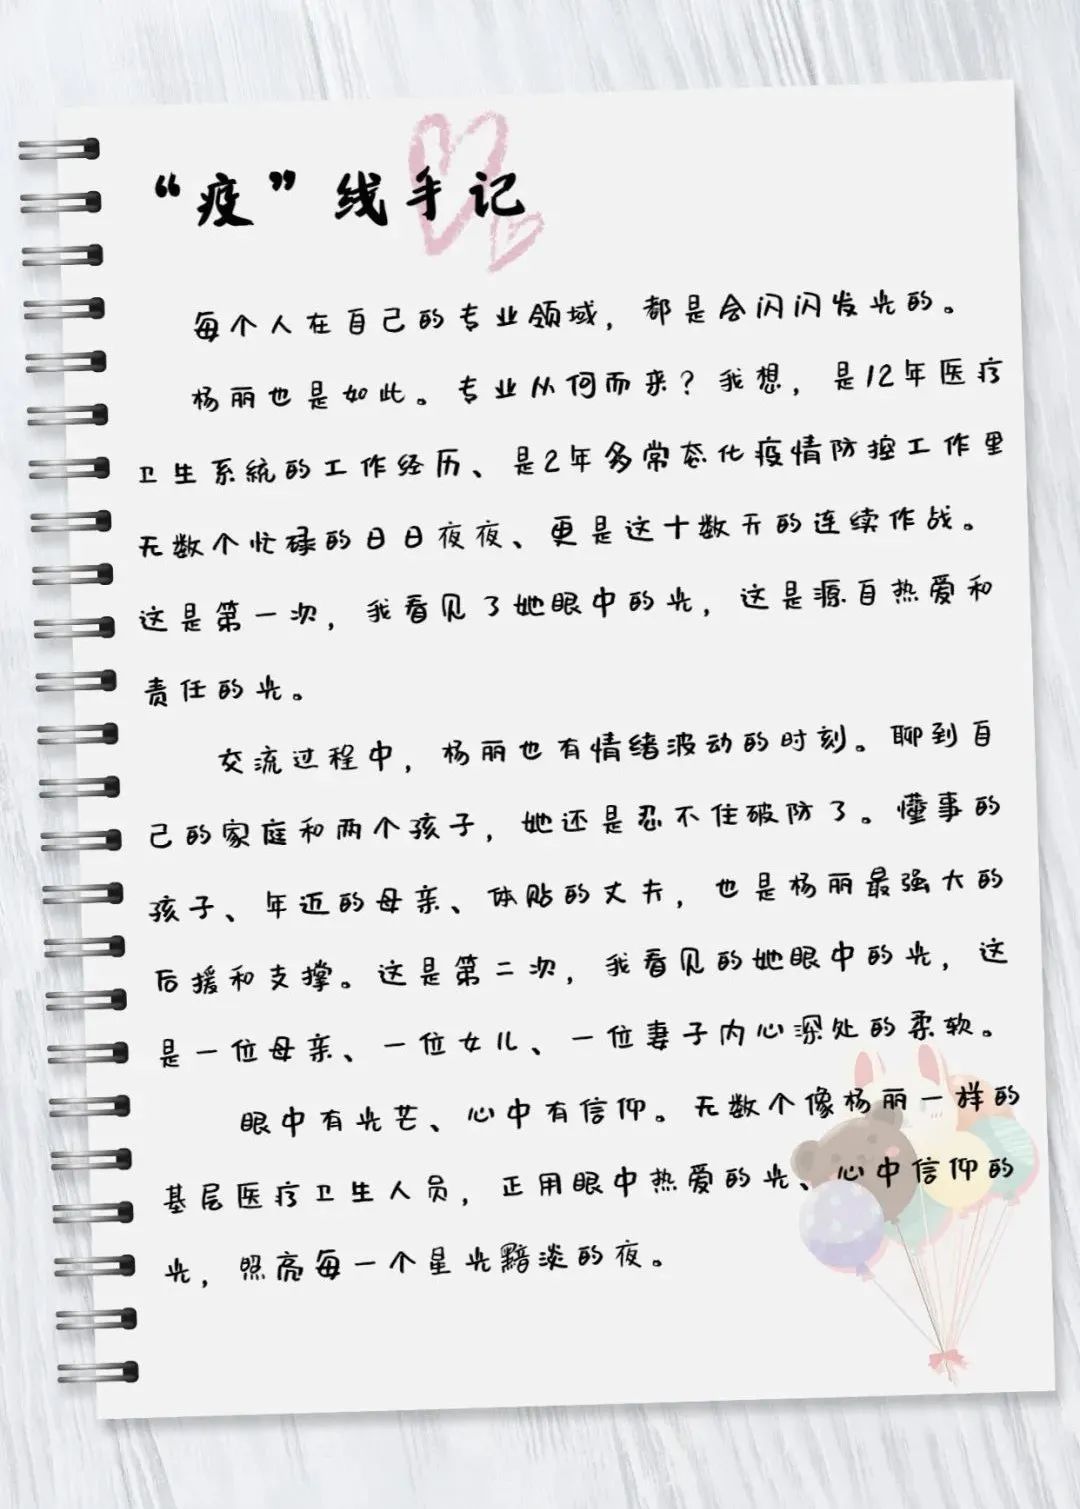 “疫”线手记
每个人在自己的专业领域，都是会闪闪发光的。
杨丽也是如此。专业从何而来？我想，是12年医疗
卫生系统的工作经历、是2年多常态化疫情防控工作里
无数个忙碌的日日夜夜、更是这十数天的连续作战。
这是第一次，我看见了她眼中的光，这是源自热爱和
责任的光。
交流过程中，杨丽也有情绪波动的时刻。聊到自
己的家庭和两个孩子，她还是忍不住破防了。懂事的
孩子、年迈的母亲、体贴的丈夫，也是杨丽最强大的
后援和支撑。这是第二次，我看见的她眼中的光，这
是一位母亲、一位女儿、一位妻子内心深处的柔软。
眼中有光芒、心中有信仰。无数个像杨丽一样的
基层医疗卫生人员，正用眼中热爱的光、心中信仰的
光，照亮每一个星光黯淡的夜。